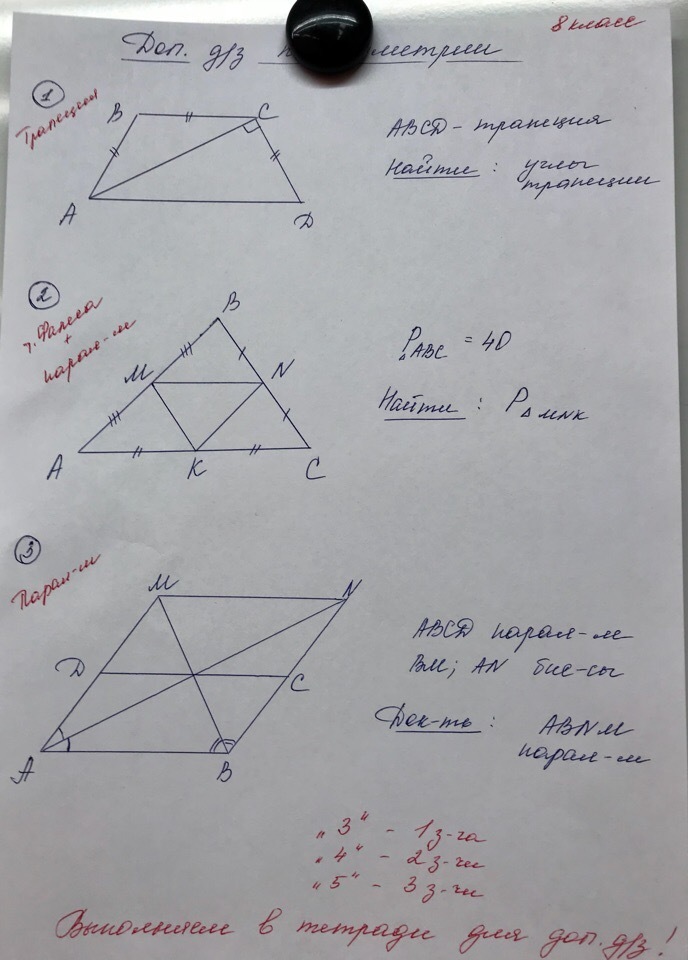 8 класс
Доп. д/з
1
Трапеция
B
C
A
D
ABCD - трапеция
Найти : углы
трапеции
2
т. Фалеса
+
парал-м
B
M
N
A
K
C
P△ABC = 40
Найти : P△MNK
3
Парал-м
M
N
D
C
A
B
ABCD парал-м
BM; AN бис-сы
Док-ть : ABNM
парал-м
„3“ - 1 з-ча
„4“ - 2 з-чи
„5“ - 3 з-чи
Выполняем в тетради для доп. д/з!